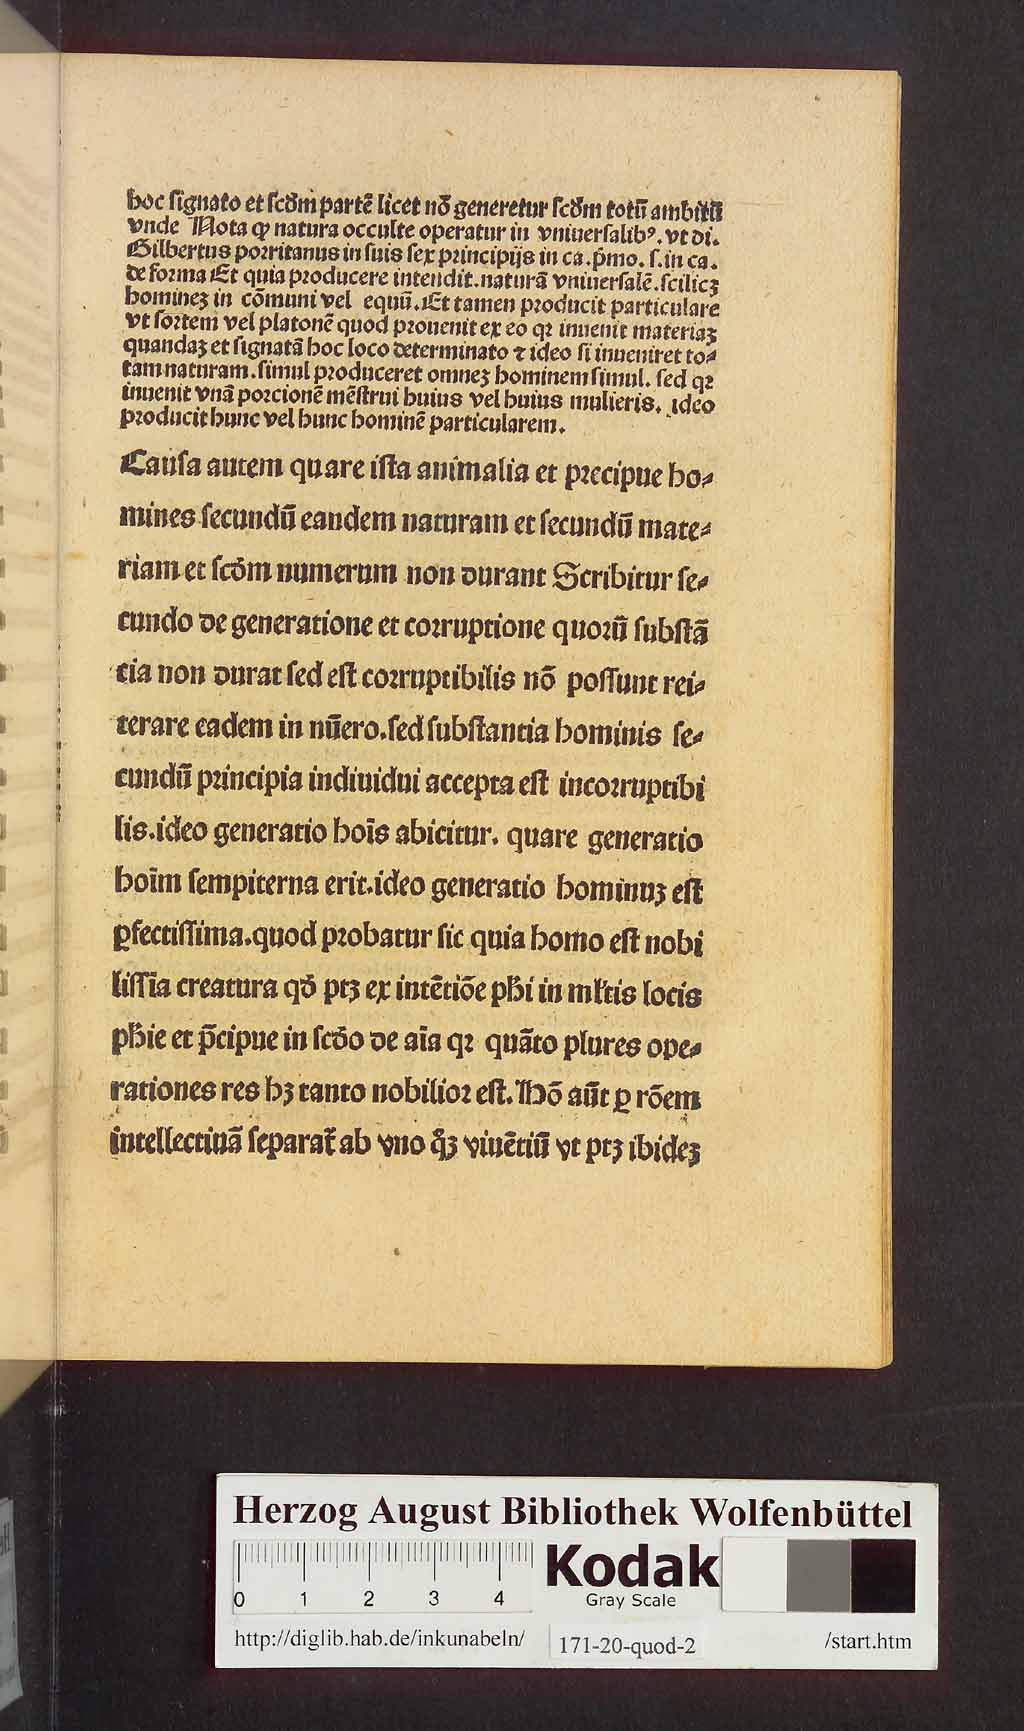 hoc ſignato et ſcd̄m partē licet nō generetur ſcd̄m totū ambitū
vnde Nota ꝙ natura occulte operatur in vniuerſalibꝰ. vt di.
Gilbertus porritanus in ſuis ſex principijs in ca. p̄mo. ſ. in ca.
de forma Et quia producere intendit. naturā vniuerſalē. ſcilicꝫ
homineꝫ in cōmuni vel equū. Et tamen producit particulare
vt ſortem vel platonē quod prouenit ex eo qꝛ inuenit materiaꝫ
quandaꝫ et ſignatā hoc loco determinato ⁊ ideo ſi inueniret to⸗
tam naturam. ſimul produceret omneꝫ hominem ſimul. ſed qꝛ
inuenit vnā porcionē mēſtrui huius vel huius mulieris. ideo
producit hunc vel hunc hominē particularem.
Cauſa autem quare iſta animalia et precipue ho⸗
mines ſecundū eandem naturam et ſecundū mate⸗
riam et ſcd̄m numerum non durant Scribitur ſe⸗
cundo de generatione et corruptione quorū ſubſtā
tia non durat ſed eſt corruptibilis nō poſſunt rei⸗
terare eadem in nūero. ſed ſubſtantia hominis ſe⸗
cundū principia indiuidui accepta eſt incorruptibi
lis. ideo generatio hoīs abicitur. quare generatio
hoīm ſempiterna erit. ideo generatio hominuꝫ eſt
ꝑfectiſſima. quod probatur ſic quia homo eſt nobi
liſſīa creatura qd̄ ptꝫ ex intētiōe ph̄i in ml̓tis locis
ph̄ie et p̄cipue in ſcd̄o de aīa qꝛ quāto plures ope⸗
rationes res hꝫ tanto nobilior eſt. Hō aūt ꝑ rōem
intellectiuā ſeparat᷑ ab vno q̊ꝫ viuētiū vt ptꝫ ibideꝫ
Herzog August Bibliothek Wolfenbüttel
0 1 2 3 4
Kodak
Gray Scale
http://diglib.hab.de/inkunabeln/ 171-20-quod-2 /start.htm